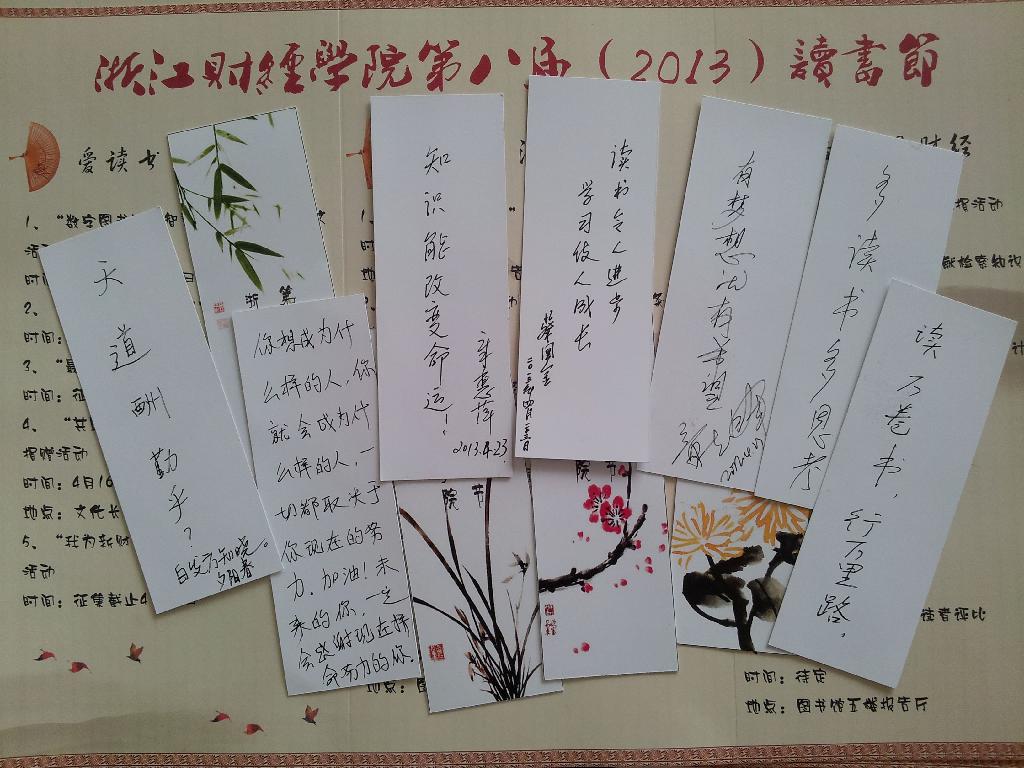 浙江财經學院第八届（2013）讀書節
爱读书
1、“数字图书
活动
时间
2、
时间：
3、“最
时间：征
4、“共
捐赠活动
时间：4月16
地点：文化长
5、“我为新财
活动
时间：征集截止4
天道酬勤乎？
自交方知晓。
夕阳春
你想成为什
么样的人，你
就会成为什
么样的人，一
切都取决于
你现在的努
力。加油！未
来的你，一定
会感谢现在拼
命努力的你。
知识能改变命运！
章惠萍
2013.4.23
读书令人进步
学习使人成长
二〇一三年四月二十三日
有梦想就有希望
多读书多思考
读万卷书，
行万里路。
财经
活动
献检索知识
读者评比
时间：待定
地点：图书馆五楼报告厅